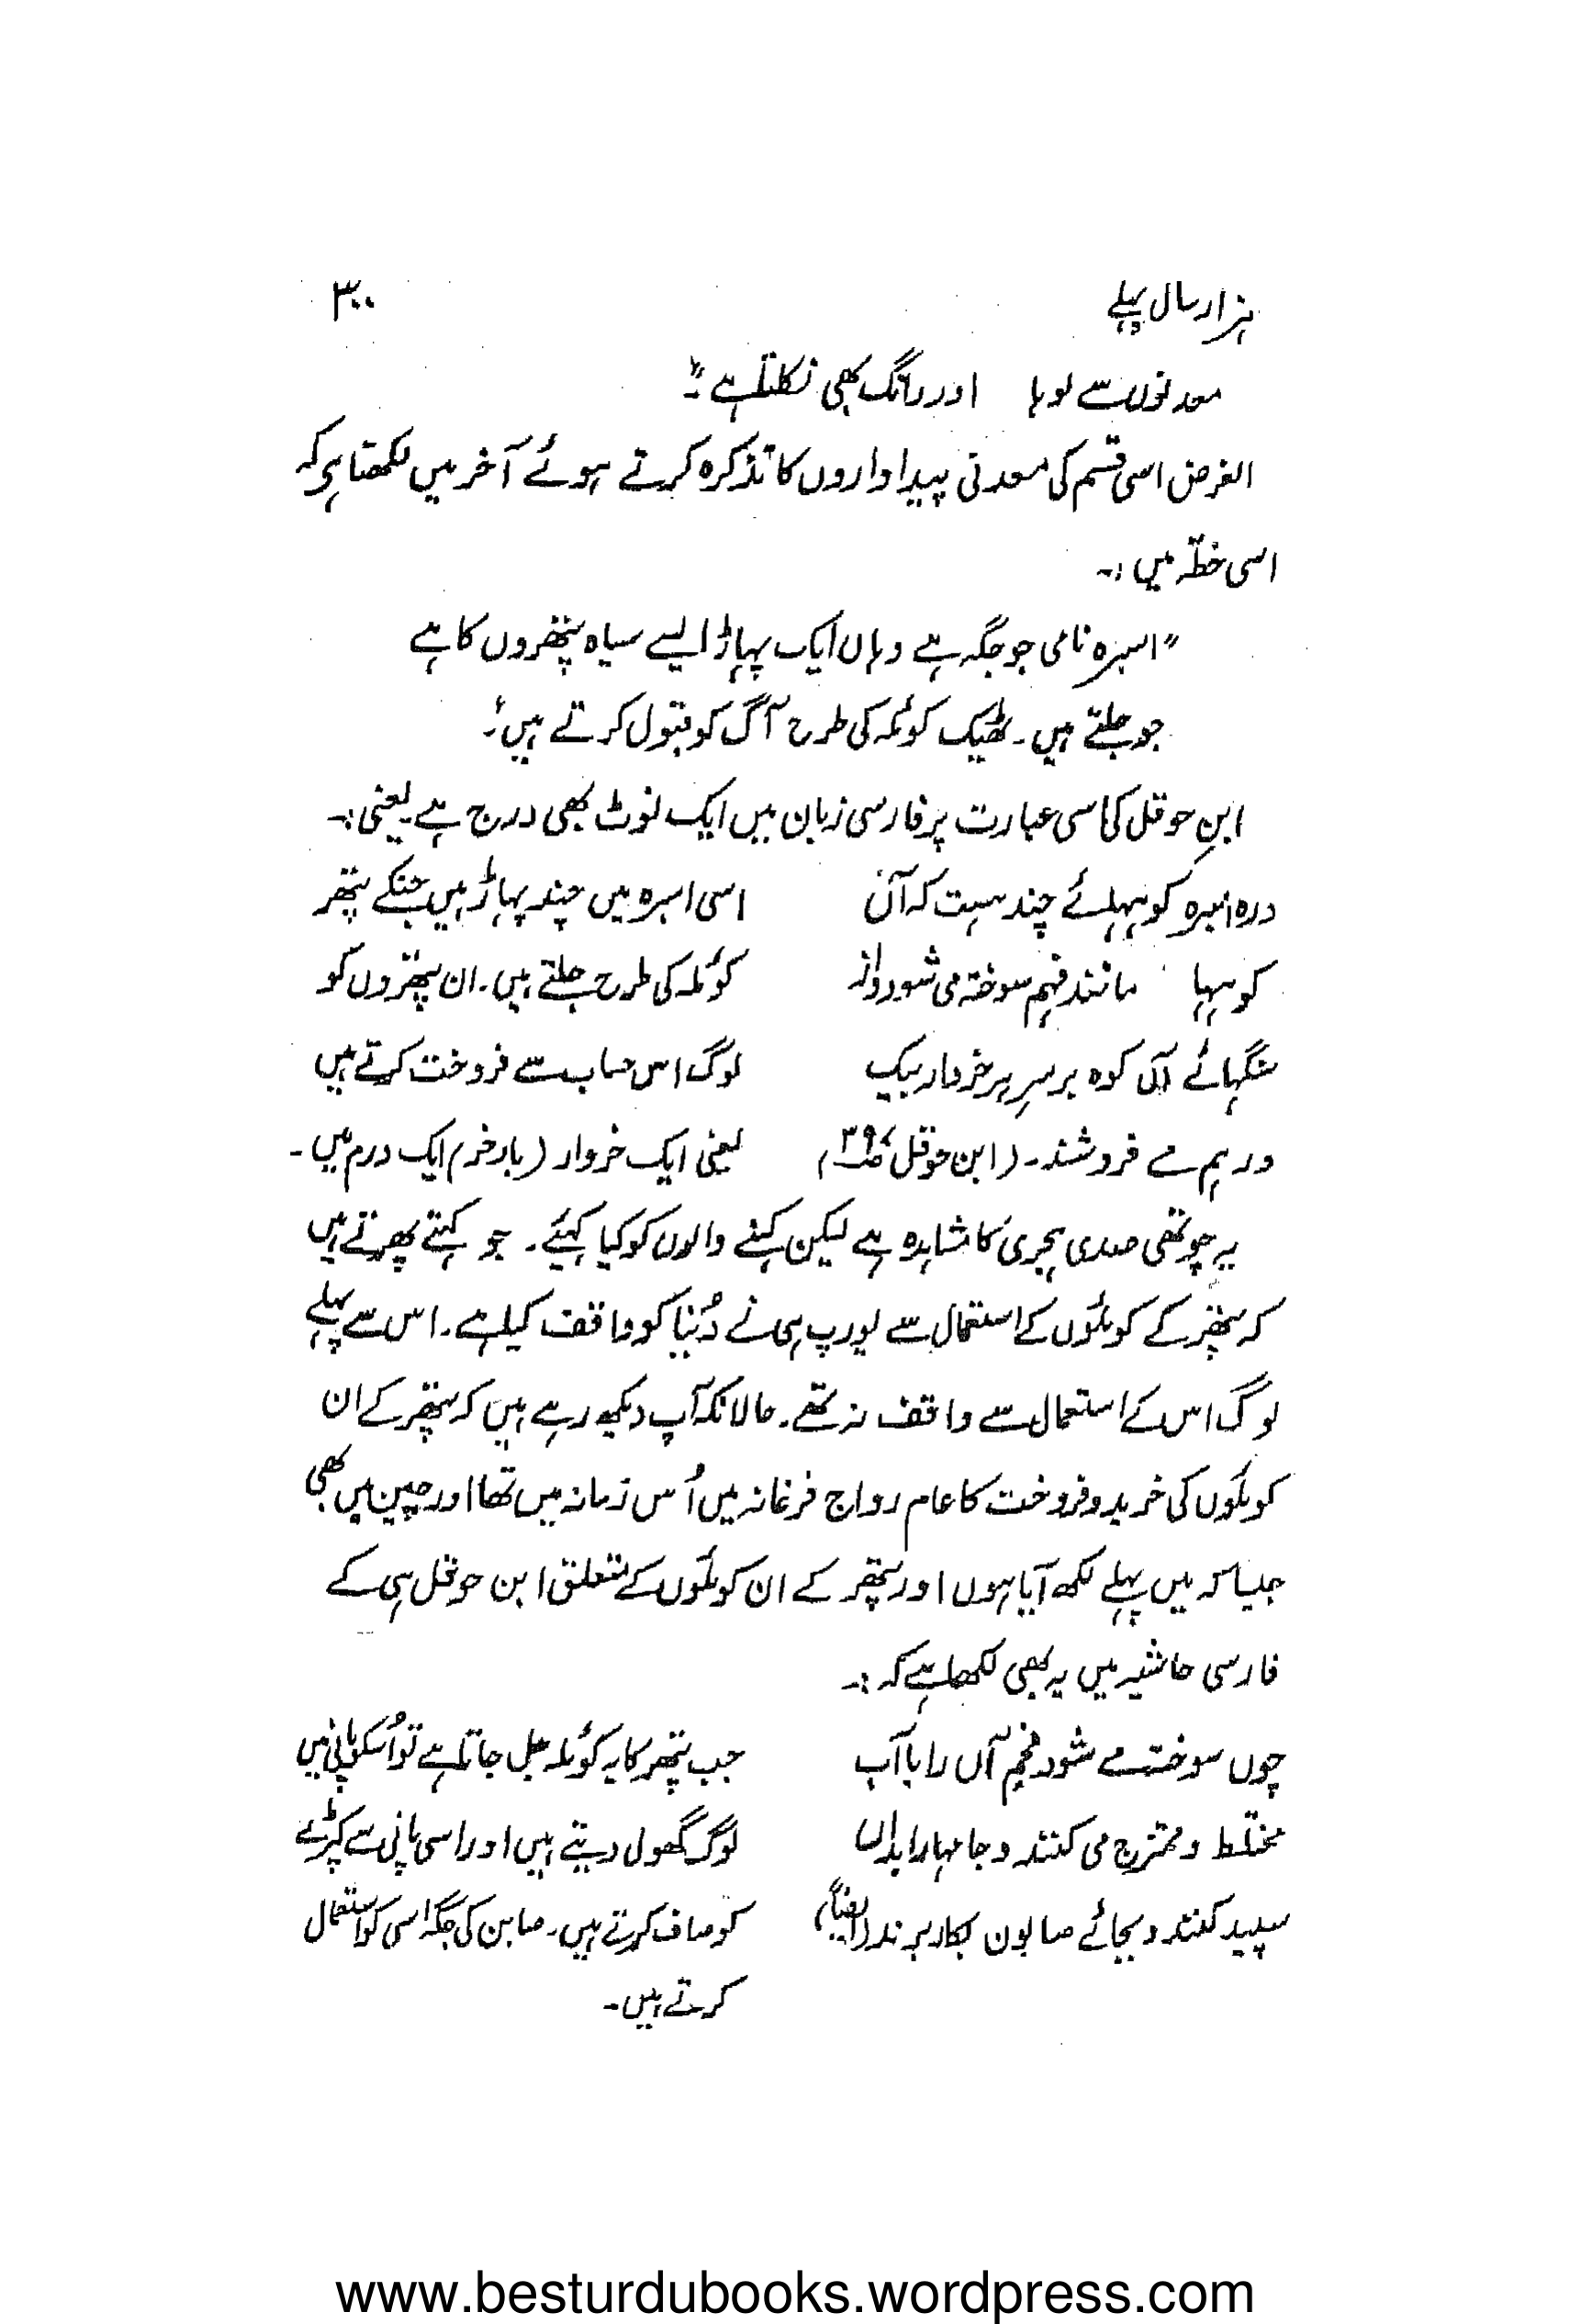 ہزار سال پہلے ۳۰۰
معدنوں سے لوہا اور رانگ بھی نکلتا ہے"۔
الغرض اسی قسم کی معدنی پیداواروں کا تذکرہ کرتے ہوئے آخر میں لکھتا ہی کہ
اسی خطّہ میں :۔
"اسبرہ نامی جو جگہ ہے وہاں ایک پہاڑ ایسے سیاہ پتھروں کا ہے
جو جلتے ہیں۔ ٹھیک کوئلہ کی طرح آگ کو قبول کرتے ہیں"۔
ابن حوقل کی اسی عبارت پر فارسی زبان میں ایک نوٹ بھی درج ہے۔ یعنی :۔
درہ اسبرہ کوہہائے چند ہست کہ آن
کوہہا مانند فہم سوختہ می شود و از
سنگہائے آں کوہ برسر ہر خروار بیک
درہم مے فروشند۔ (ابن حوقل ص۳۹۴)
اسی اسبرہ میں چند پہاڑ ہیں جنکے پتھر
کوئلہ کی طرح جلتے ہیں۔ ان پتھروں کو
لوگ اس حساب سے فروخت کرتے ہیں
یعنی ایک خروار (بارخر) ایک درم میں۔
یہ چوتھی صدی ہجری کا مشاہدہ ہے لیکن کہنے والوں کو کیا کہئے۔ جو کہتے پھرتے ہیں
کہ پتھر کے کوئلوں کے استعمال سے یورپ ہی نے دُنیا کو واقف کیا ہے۔ اس سے پہلے
لوگ اس کے استعمال سے واقف نہ تھے۔ حالانکہ آپ دیکھ رہے ہیں کہ پتھر کے ان
کوئلوں کی خرید و فروخت کا عام رواج فرغانہ میں اُس زمانہ میں تھا اور چین میں بھی
جیسا کہ میں پہلے لکھ آیا ہوں اور پتھر کے ان کوئلوں کے متعلق ابن حوقل ہی کے
فارسی حاشیہ میں یہ بھی لکھا ہے کہ :۔
چوں سوختہ مے شود فحم آں را با آب
مختلط و ممتزج می کنند و جامہا را بداں
سپید کنند و بجائے صابون بکار برند (ایضاً)
جب پتھر کا یہ کوئلہ جل جاتا ہے تو اُسکو پانی میں
لوگ گھول دیتے ہیں اور اسی پانی سے کپڑے
کو صاف کرتے ہیں۔ صابن کی جگہ اسی کو استعمال
کرتے ہیں۔
www.besturdubooks.wordpress.com